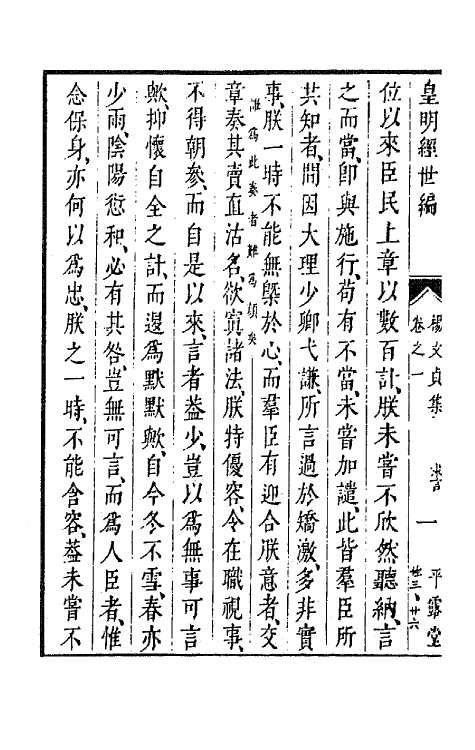 皇明經世編
楊文貞集
卷之一
一
平露堂
位以來臣民上章以數百計、朕未嘗不欣然聽納、言
之而當、卽與施行、苟有不當、未嘗加譴、此皆羣臣所
共知者、間因大理少卿弋謙所言過於矯激、多非實
事、朕一時不能無槩於心、而羣臣有迎合朕意者、交
雖爲此奏者難爲顏矣
章奏其賣直沽名、欲寘諸法、朕特優容、令在職視事、
不得朝參、而自是以來、言者益少、豈以爲無事可言
歟、抑懷自全之計、而退爲默默歟、自今冬不雪、春亦
少雨、陰陽愆和、必有其咎、豈無可言、而爲人臣者、惟
念保身、亦何以爲忠、朕之一時、不能含容、葢未嘗不